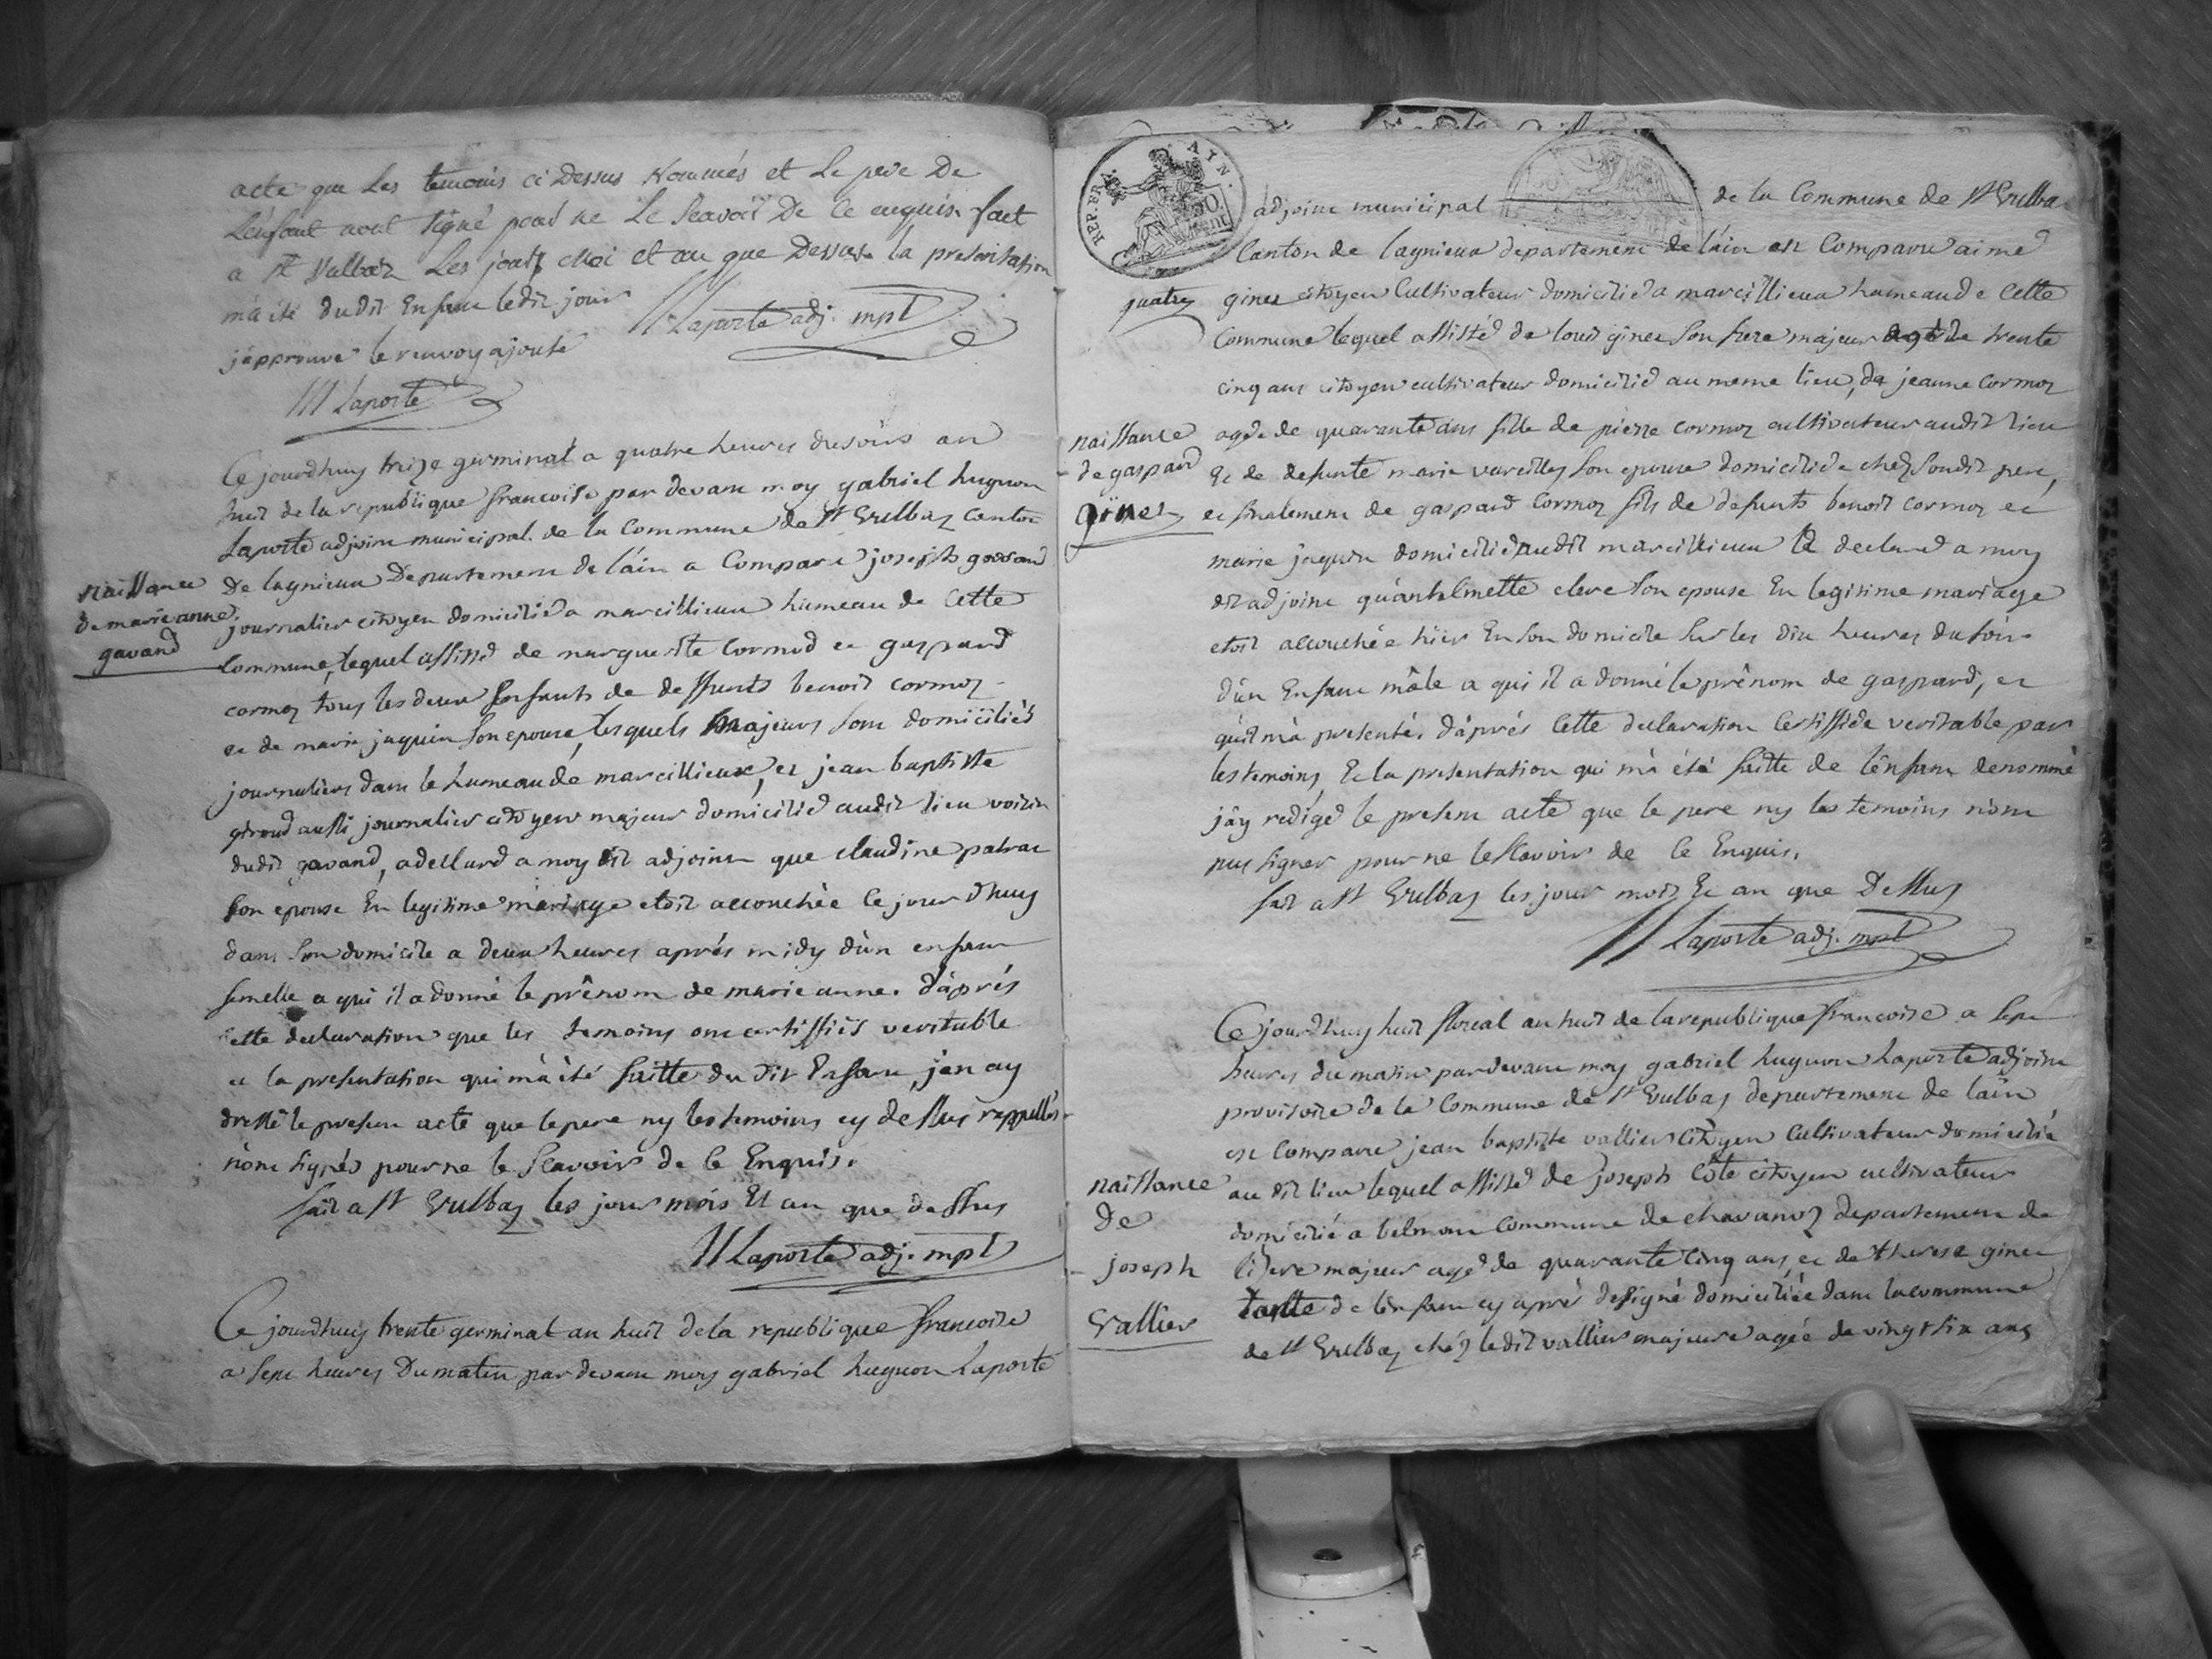 acte que Les temoins ci Dessus Nommés et Le pere De
L'enfant nont signé pour ne Le Scavoir De Ce enquis. fait
a St Vulbaz Les jour, moi et an que Dessus. la presentation
m'a été du dit Enfant ledit jour
M Laporte adj. mpl
j'approuve le renvoy ajouté
M Laporte
Ce jourdhuy treize germinal a quatre heures dusoir an
huit de la republique francoise par devant moy gabriel huguon
Laporte adjoint municipal. de la Commune de St Vulbaz Canton
naissance
de marie anne
gavand
De lagnieux Departement de l'áin a Comparu joseph gavand
journalier citoyen domicilié a marcillieux hameau de Cette
Commune, lequel assisté de marguerite Cormod et gaspard
cormoz tous les deux Enfants de deffunts benoit cormoz
et de marie jaquin Son epouse, lesquels Majeurs Sont domiciliés
journaliers dans le hameau de marcillieux, et jean baptiste
giroud aussi journalier citoyen majeur domicilié audit lieu voisin
dudit gavand, a declaré a moy dit adjoint que claudine patrac
Son epouse En legitime mariage etoit accouchée Ce jourdhuy
dans Son domicile a deux heures aprés midy d'ún enfant
femelle a qui il a donné le prênom de marie anne. d'áprés
Cette declaration que les temoins ont certiffiés veritable
et la presentation qui m'á été faitte du dit Enfant, j'en ay
dressé le present acte que le pere ny les temoins cy dessus rappellés
n'ont signés pour ne le Scavoir de Ce Enquis.
fait a St Vulbaz les jour mois Et an que dessus
M Laporte adj. mpl
Ce jourdhuy trente germinal an huit de la republique francoise
a Sept heures Du matin par devant moy gabriel huguon Laporte
REP. FRA.
AYN.
adjoint municipal de la Commune de St Vulbaz
Canton de lagnieux departement de l'áin est Comparu aimé
quatre
ginet citoyen Cultivateur domicilié a marcillieux hameau de Cette
Commune lequel assisté de louis ginet Son frere majeur agé de trente
cinq ans citoyen cultivateur domicilié au meme lieu, de jeanne Cormoz
naissance
de gaspard
ginet
agée de quarante ans fille de pierre cormoz cultivateur audit lieu
Et de defunte marie vareilles Son epouse domiciliée chez Sondit pere,
et finalement de gaspard Cormoz fils de defunts benoit cormoz et
marie jaquin domicilié audit marcillieux a declaré a moy
dit adjoint qu'ánthelmette clere Son epouse En legitime mariage
etoit accouchée hier En Son domicile Sur les dix heures du soir
d'ún Enfant mâle a qui il a donné le prênom de gaspard, et
qu'il m'á presenté. d'áprés Cette declaration Certiffiée veritable par
les temoins, Et la presentation qui m'á été faitte de l'enfant denommé
j'áy redigé le present acte que le pere ny les temoins n'ont
pus signer pour ne le Scavoir de Ce Enquis.
fait a St Vulbaz les jour mois Et an que Dessus
M Laporte adj. mpl
Ce jourdhuy huit floreal an huit de la republique francoise a Sept
heures du matin par devant moy gabriel huguon Laporte adjoint
provisoire de la Commune de St Vulbaz departement de l'áin
est Comparu jean baptiste vallier Citoyen Cultivateur domicilié
naissance
de
joseph
Vallier
au dit lieu lequel assisté de joseph Côte citoyen cultivateur
domicilié a belmont Commune de chavanoz departement de
l'isere majeur agé de quarante Cinq ans, et de therese ginet
tante de l'enfant cy aprés designé domiciliée dans la commune
de St Vulbaz chéz ledit vallier majeure agée de vingt Six ans